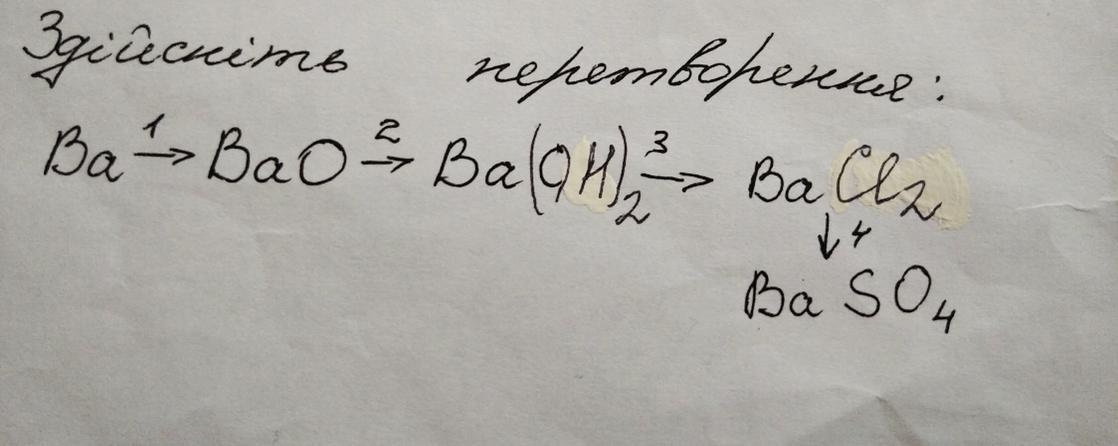 Здійсніть перетворення:
Ba 1→ BaO 2→ Ba(OH)₂ 3→ BaCl₂
↓ 4
BaSO₄